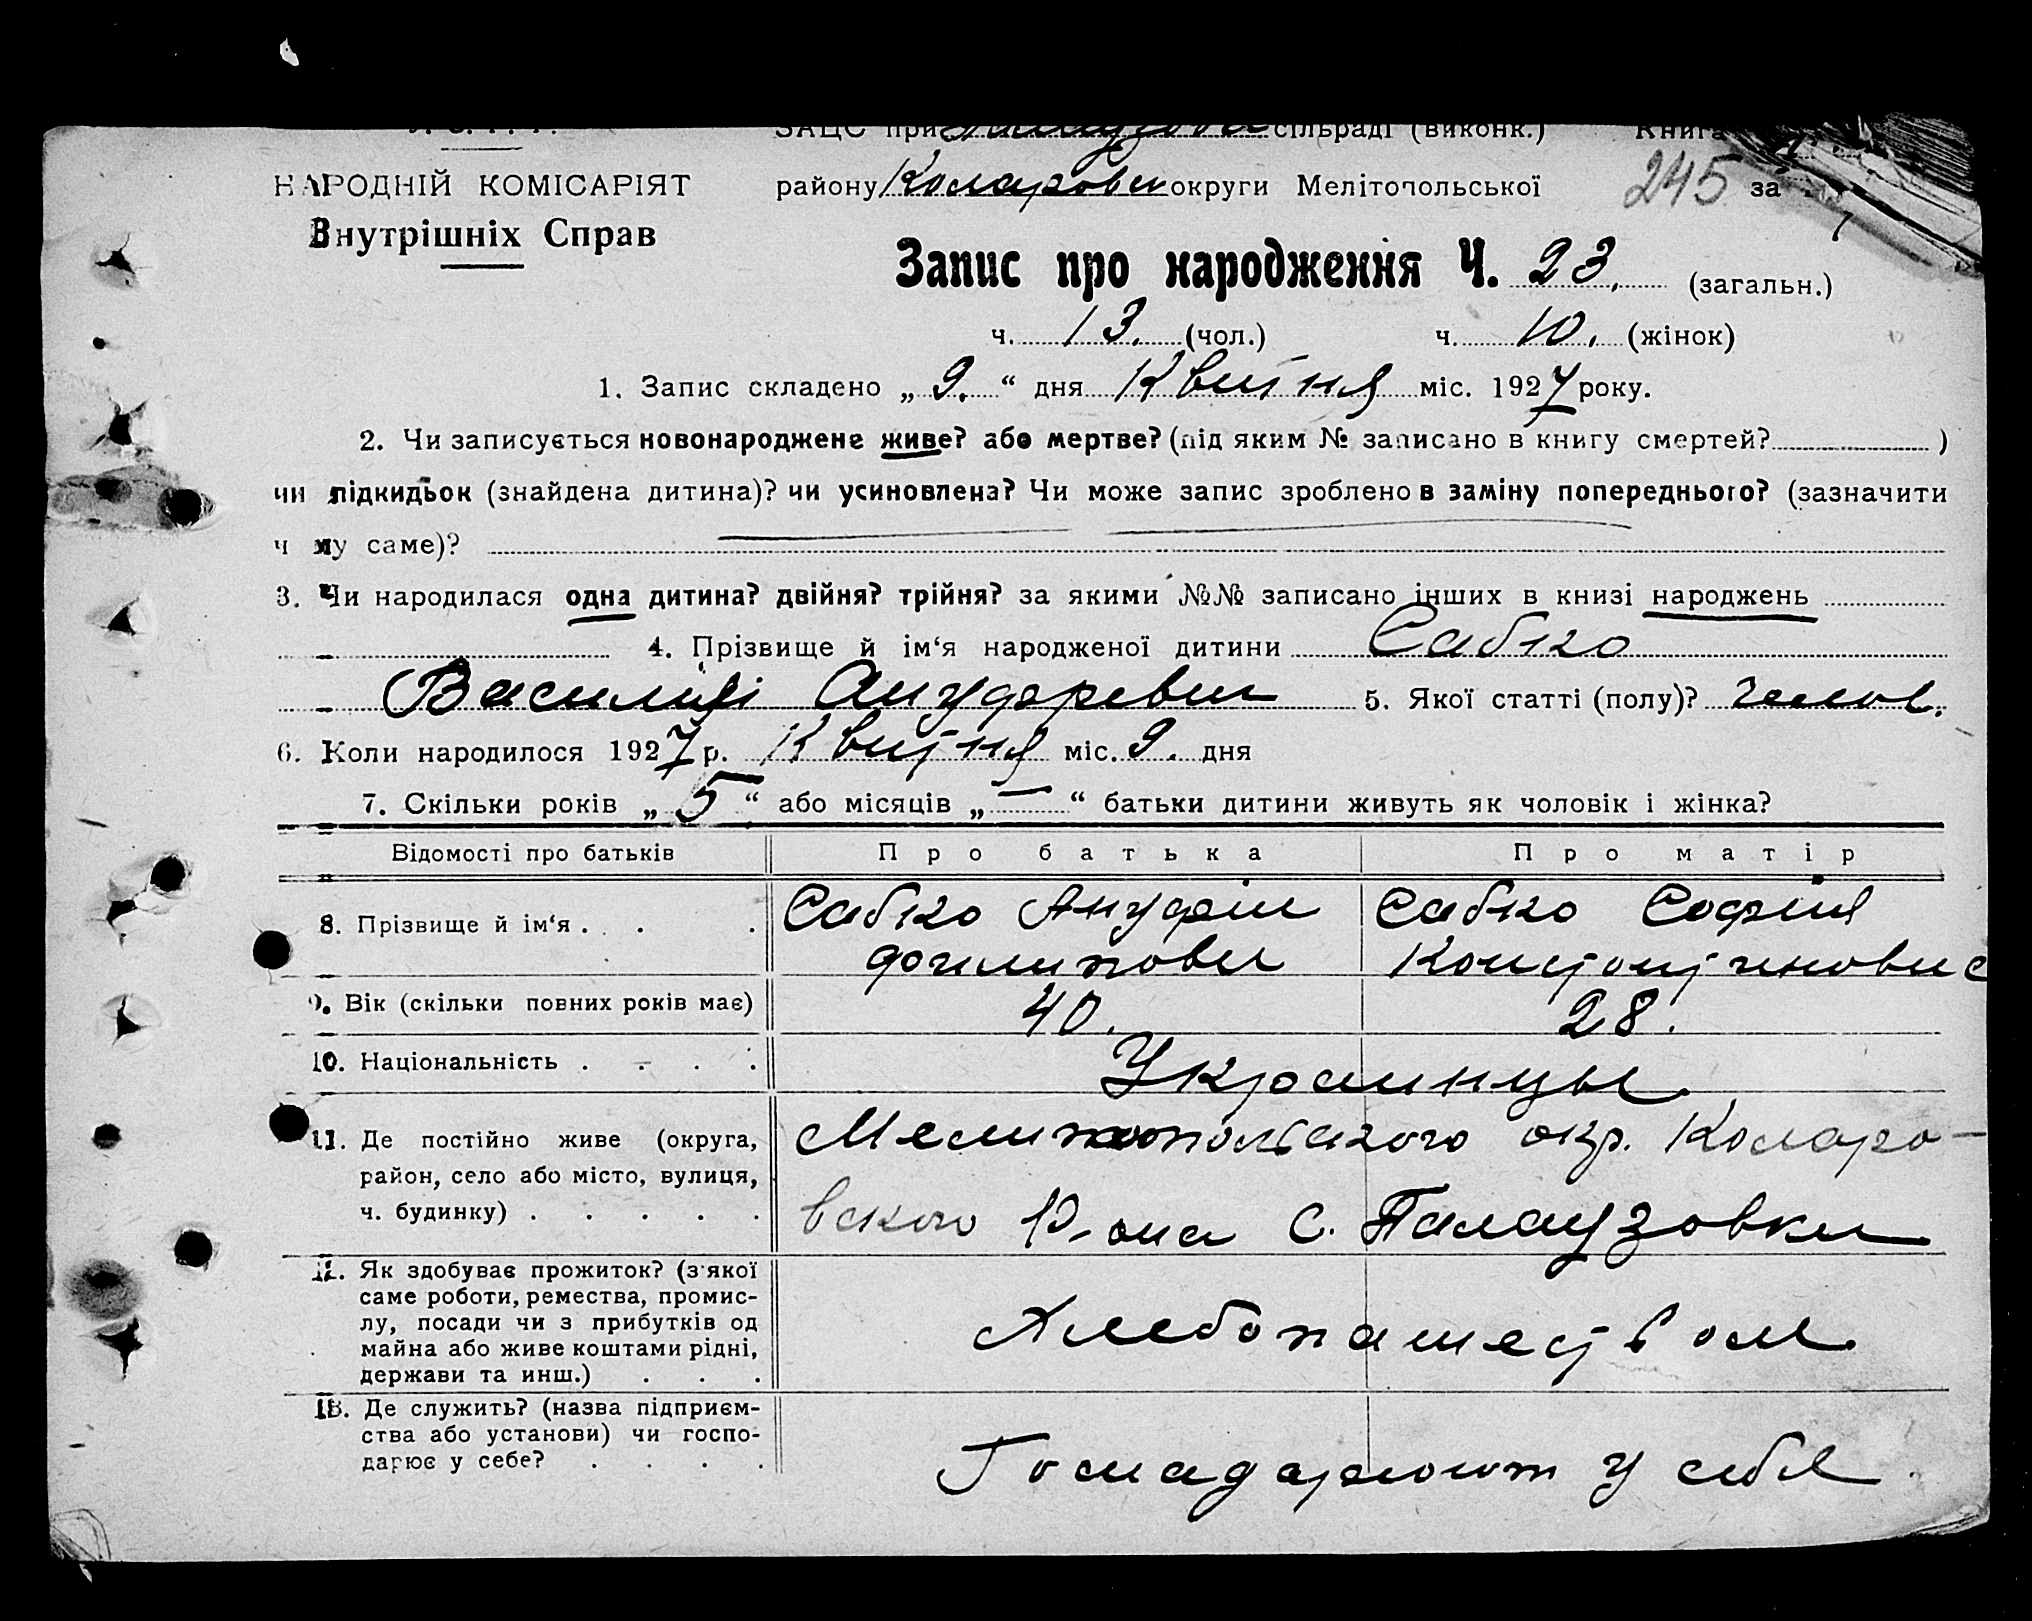 ЗАЦС при сільраді (виконк.) Книга
НАРОДНІЙ КОМІСАРІЯТ
Внутрішніх Справ
району Коларовск округи Мелітопольської 245 за
Запис про народження Ч. 23. (загальн.)
ч. 13. (чол.) ч. 10. (жінок)
1. Запис складено „ 9. “ дня Квитня міс. 1927 року.
2. Чи записується новонароджене живе? або мертве? (під яким № записано в книгу смертей? )
чи підкидьок (знайдена дитина)? чи усиновлена? Чи може запис зроблено в заміну попереднього? (зазначити
ч му саме)?
3. Чи народилася одна дитина? двійня? трійня? за якими №№ записано інших в книзі народжень
4. Прізвище й ім‘я народженої дитини Сабко
Василий Ануфревич 5. Якої статті (полу)? челов.
6. Коли народилося 1927 р. Квитня міс. 9. дня
7. Скільки років „ 5 “ або місяців „ — “ батьки дитини живуть як чоловік і жінка?
Відомості про батьків Про батька Про матір
8. Прізвище й ім‘я . . . . Сабко Ануфрий Сабко София
9. Вік (скільки повних років має) 40. 28.
10. Національність . . . . Украинцы
11. Де постійно живе (округа, Мелитопольского окр. Коларо-
район, село або місто, вулиця,
ч. будинку) . . . . . вского Р-она с. Палаузовки
12. Як здобуває прожиток? (з якої
саме роботи, ремества, промис-
лу, посади чи з прибутків од Хлебопашеством
майна або живе коштами рідні,
держави та инш.) . . .
13. Де служить? (назва підприєм-
ства або установи) чи госпо-
дарює у себе? . . . . Госпадарюют у себя